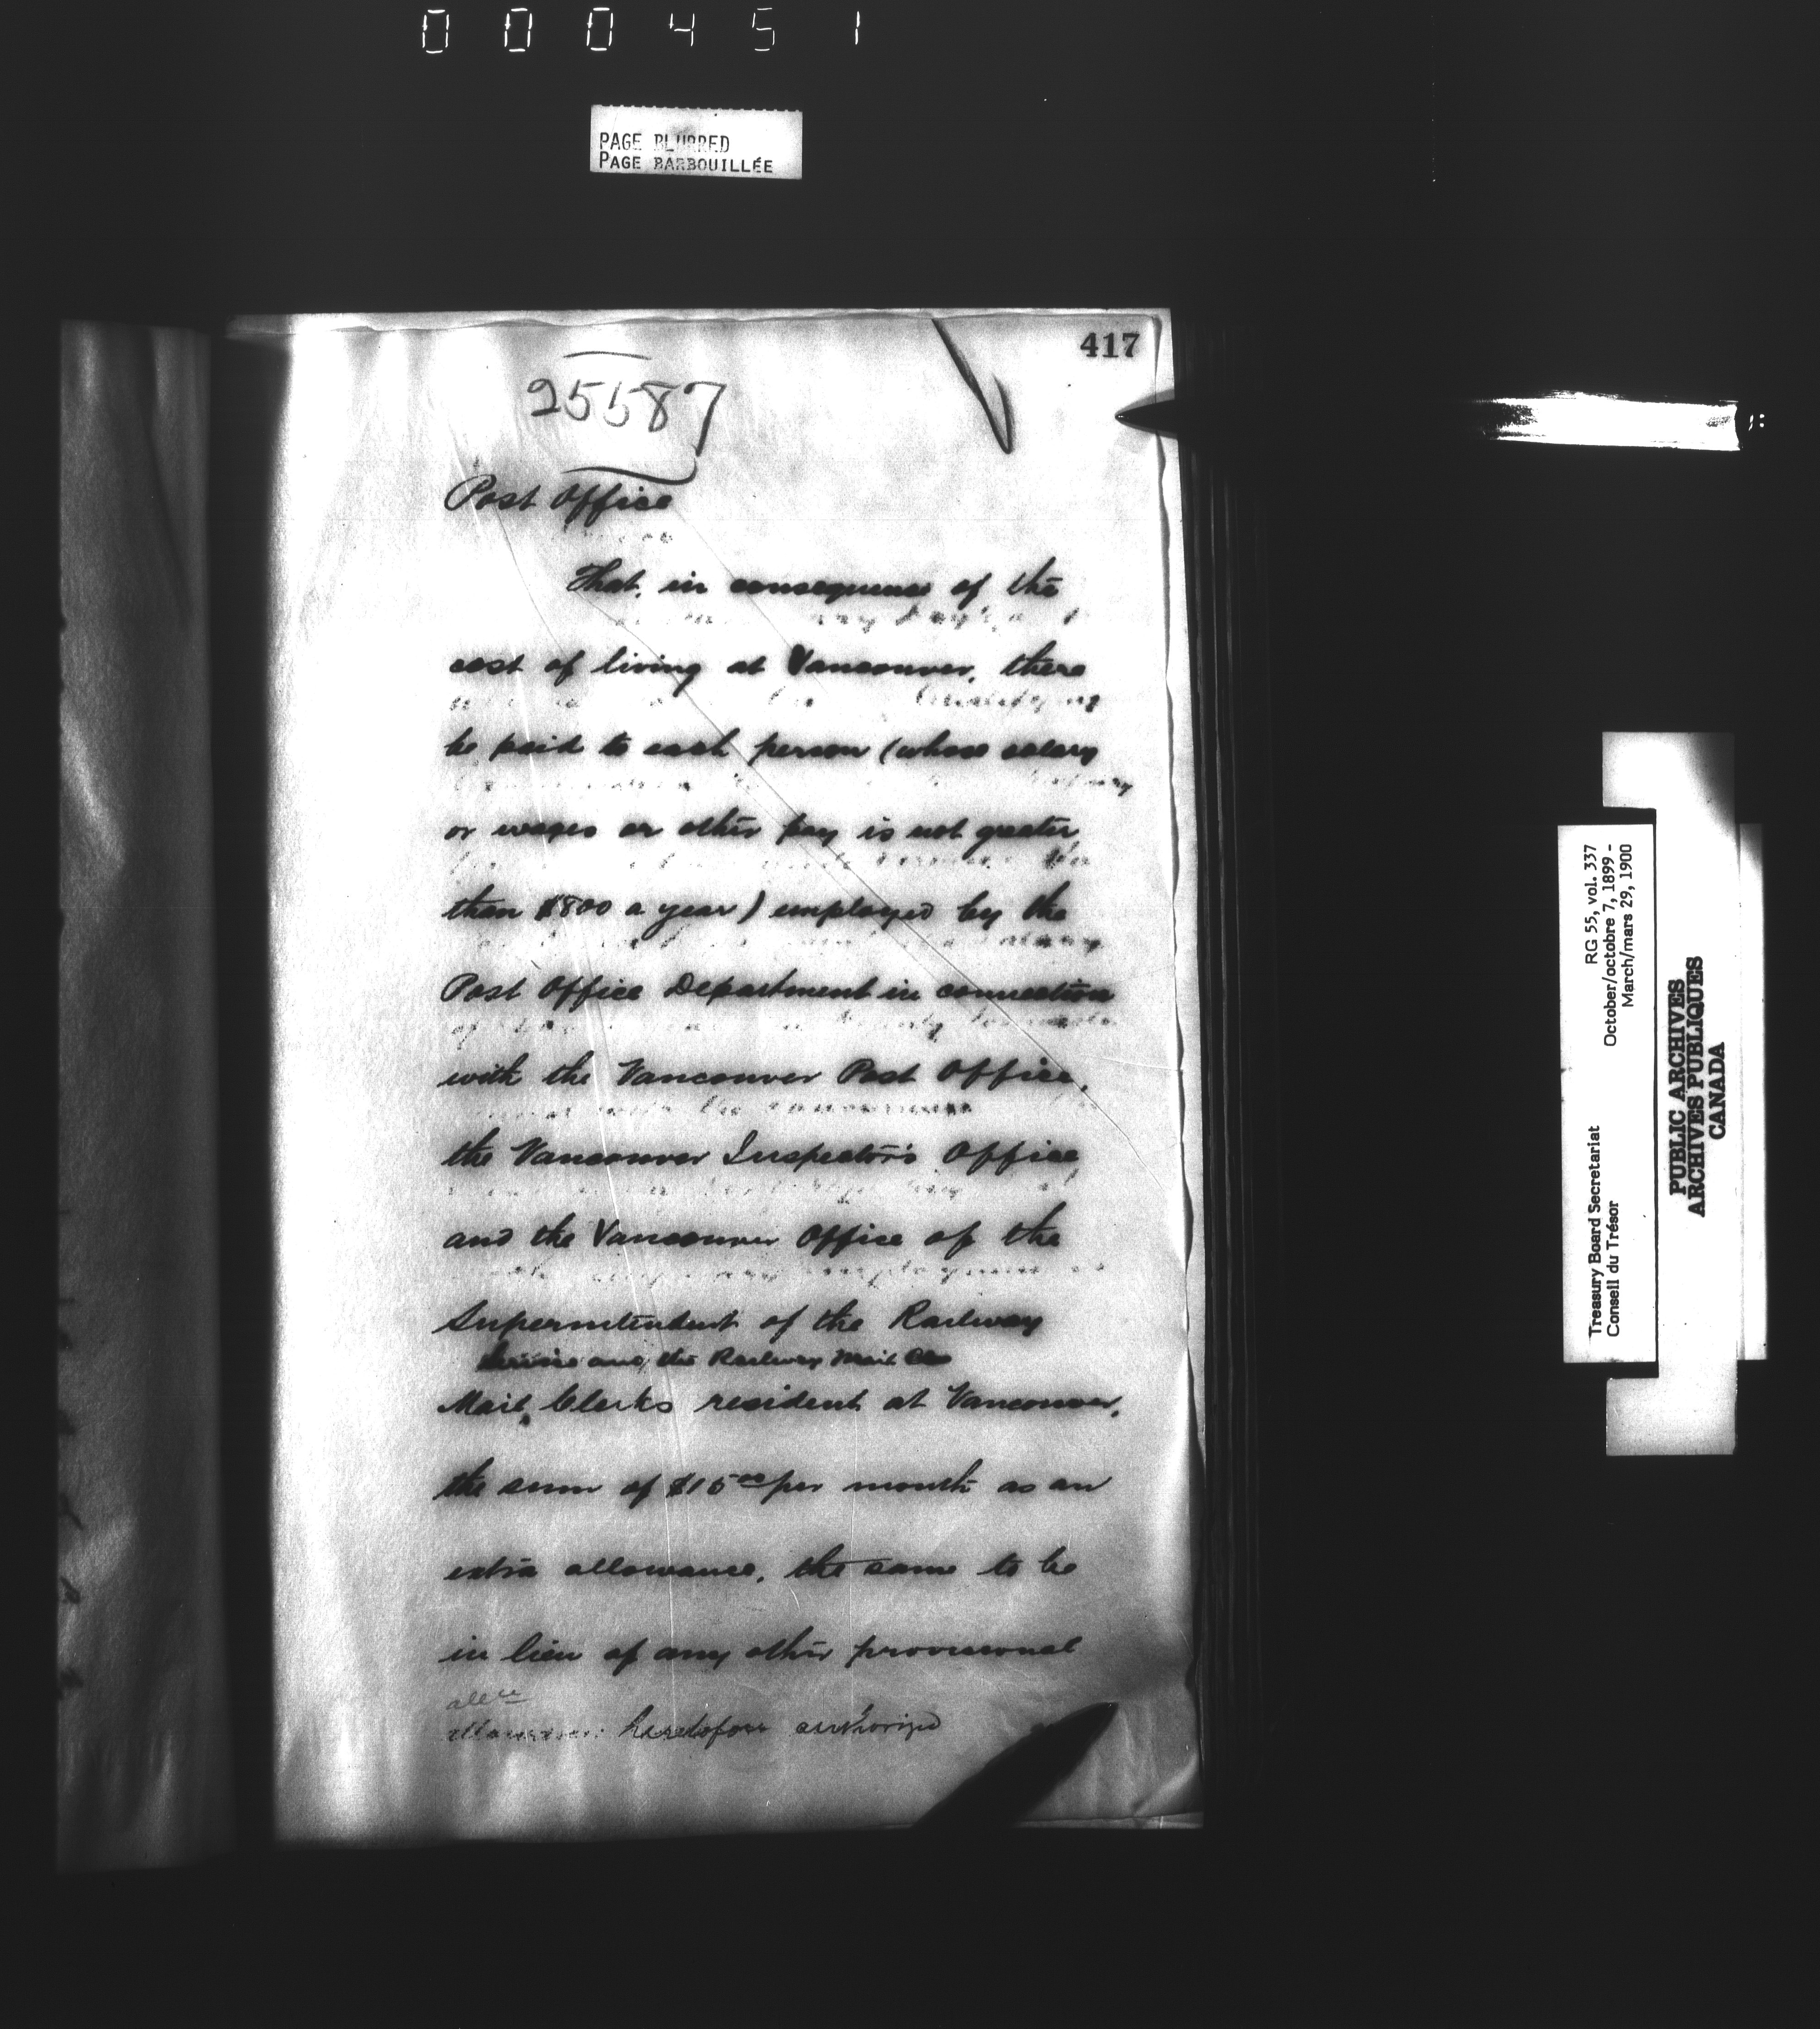 000451
PAGE BLURRED
PAGE BARBOUILLÉE
417
25587
Post Office
That, in consequence of the
cost of living at Vancouver, there
be paid to each person (whose salary
or wages or other pay is not greater
than $800 a year) employed by the
Post Office Department in connection
with the Vancouver Post Office,
the Vancouver Inspector's Office
and the Vancouver Office of the
Superintendent of the Railway
Service and the Railway Mail
Mail Clerks resident at Vancouver,
the sum of $15 00 per month as an
extra allowance, the same to be
in lieu of any other provisional
allce
heretofore authorized
Treasury Board Secretariat RG 55, vol. 337
Conseil du Trésor October/octobre 7, 1899 -
March/mars 29, 1900
PUBLIC ARCHIVES
ARCHIVES PUBLIQUES
CANADA